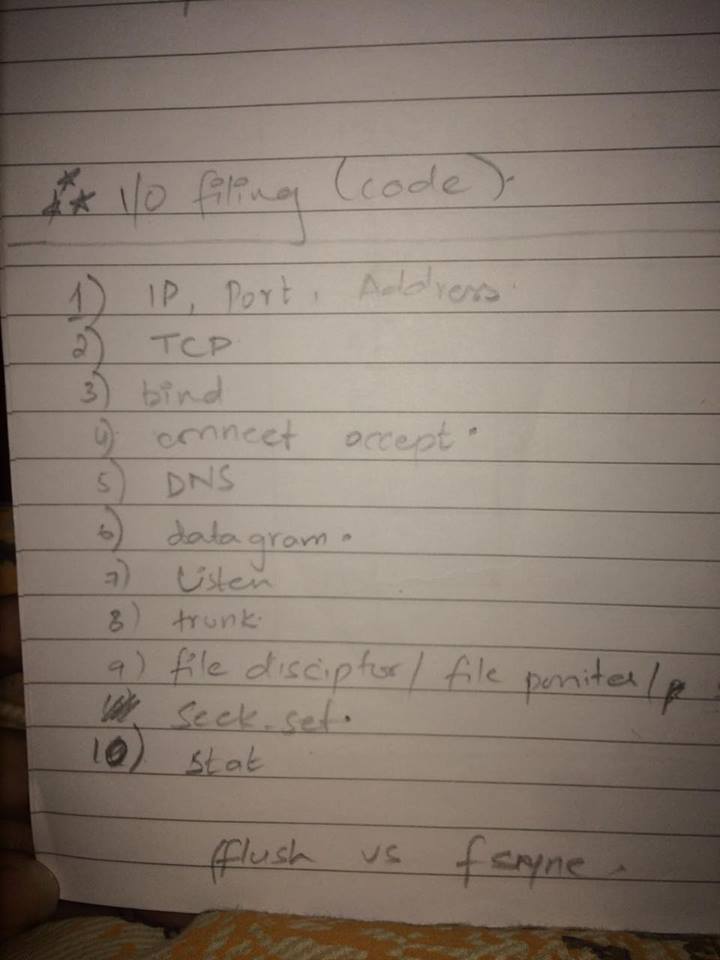 I/O filing (code).
1) IP, Port, Address.
2) TCP
3) bind
4) connect accept.
5) DNS
6) datagram.
7) Listen
8) trunk.
9) file disciptor / file poniter /
seek-set.
10) stat
fflush vs fsync.